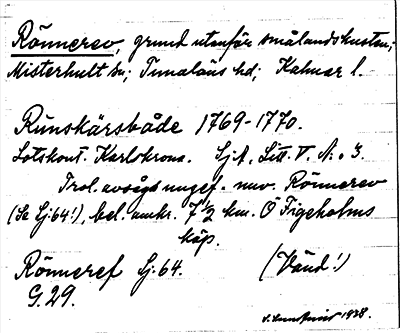 Rönnerev, grund utenför smålandskusten;
Misterhult sn; Tunaläns hd; Kalmar l.
Runskärsbåde 1769-1770.
Lotskont. Karlskrona. SjA, Litt. V. N:o 3.
Trol. avsågs ungef. nuv. Rönnerev
(Se Sj. 64!), bel. omkr. 7 ½ km. Ö Figeholms
köp.
Rönneref Sj. 64. (Vänd!)
G. 29.
1938.